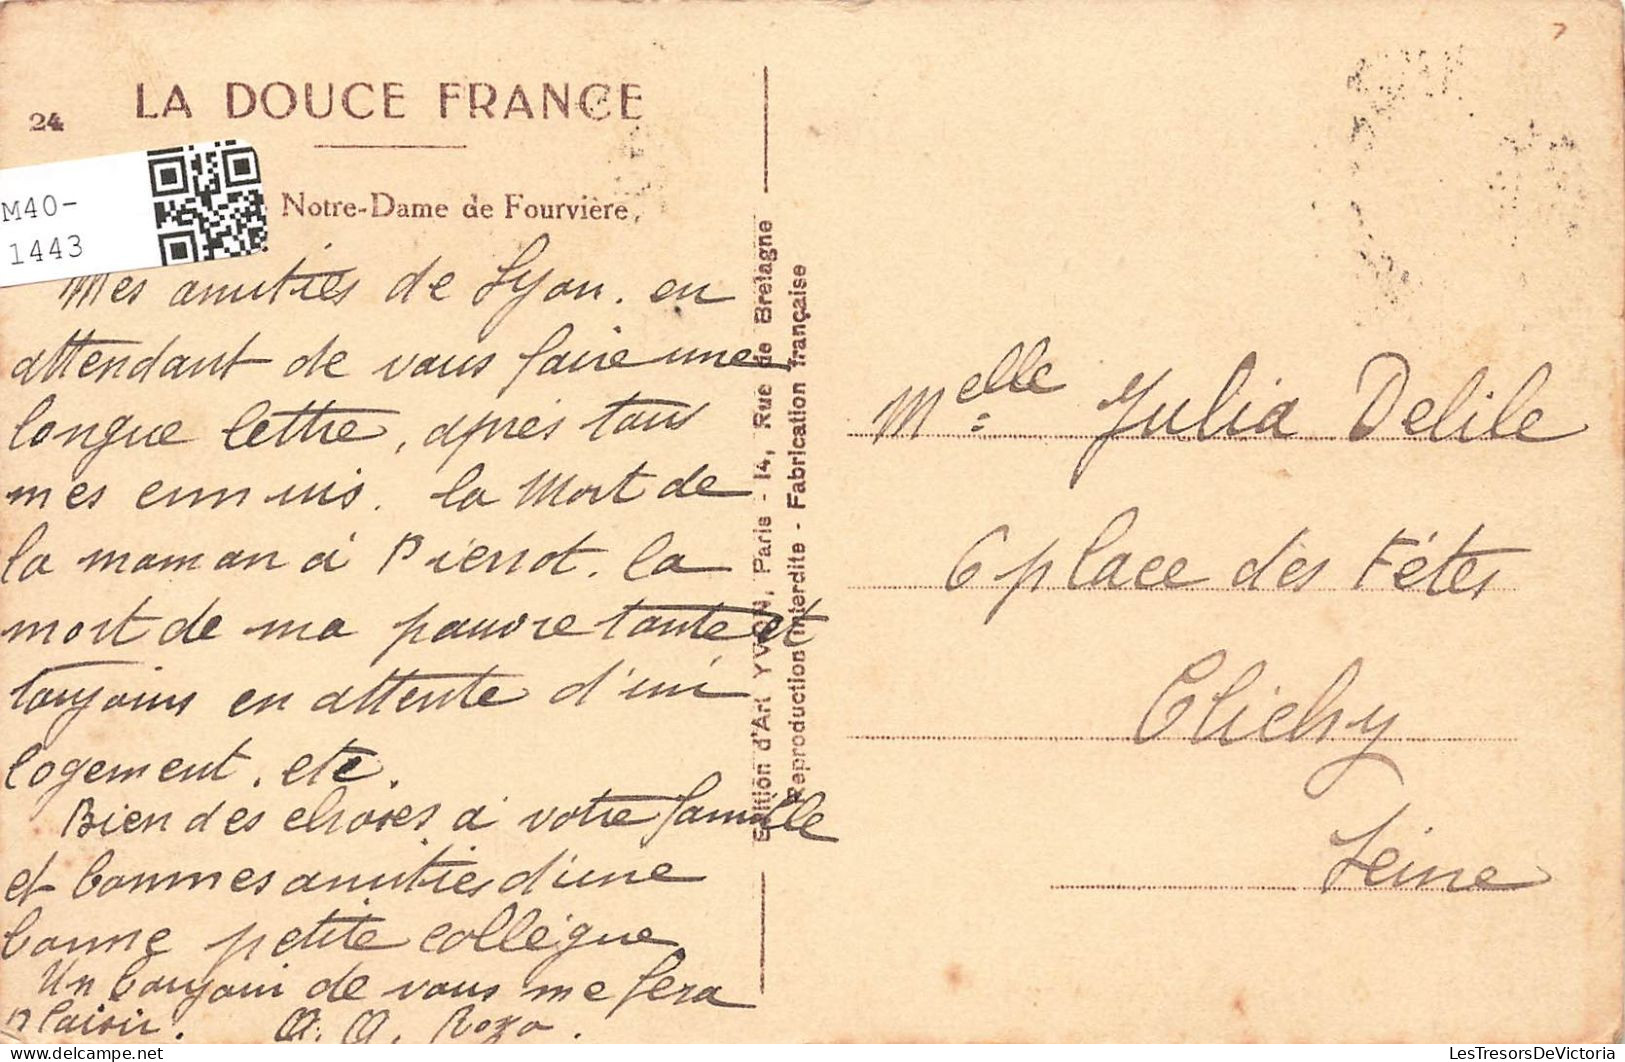 24
LA DOUCE FRANCE
M40-
1443
Notre-Dame de Fourvière
Mes amitiés de Lyon. en
attendant de vous faire une
longue lettre, après tous
mes ennuis. la Mort de
la maman à Pierrot. la
mort de ma pauvre tante et
toujours en attente d'un
logement. etc.
Bien des choses à votre famille
et bonnes amitiés d'une
bonne petite collègue
Un bonjour de vous me fera
plaisir.
Edition d'Art YVON, Paris - 14, Rue de Bretagne
Reproduction interdite - Fabrication française
Melle Julia Delile
6 place des Fêtes
Clichy
Seine
LesTresorsDeVictoria